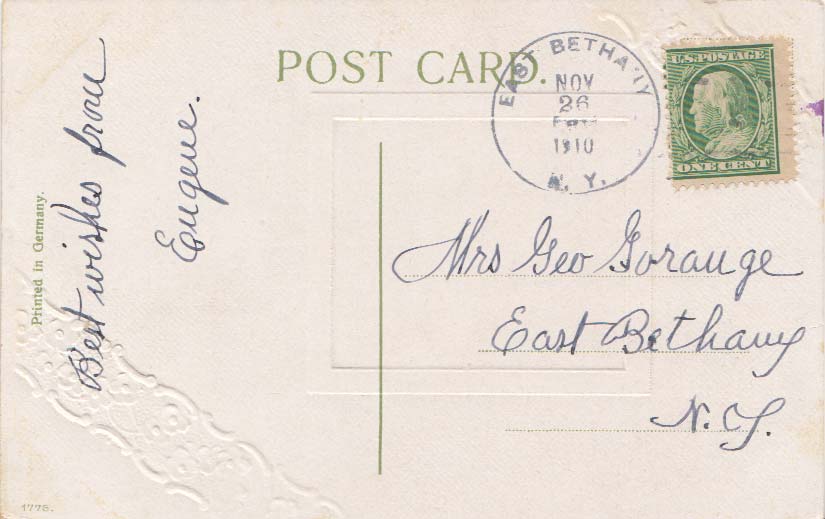 POST CARD.
EAST BETHANY
NOV
26
1910
N. Y.
U.S. POSTAGE
ONE CENT
Best wishes from
Eugene.
Mrs Geo Gorange
East Bethany
N.Y.
Printed in Germany.
1775.